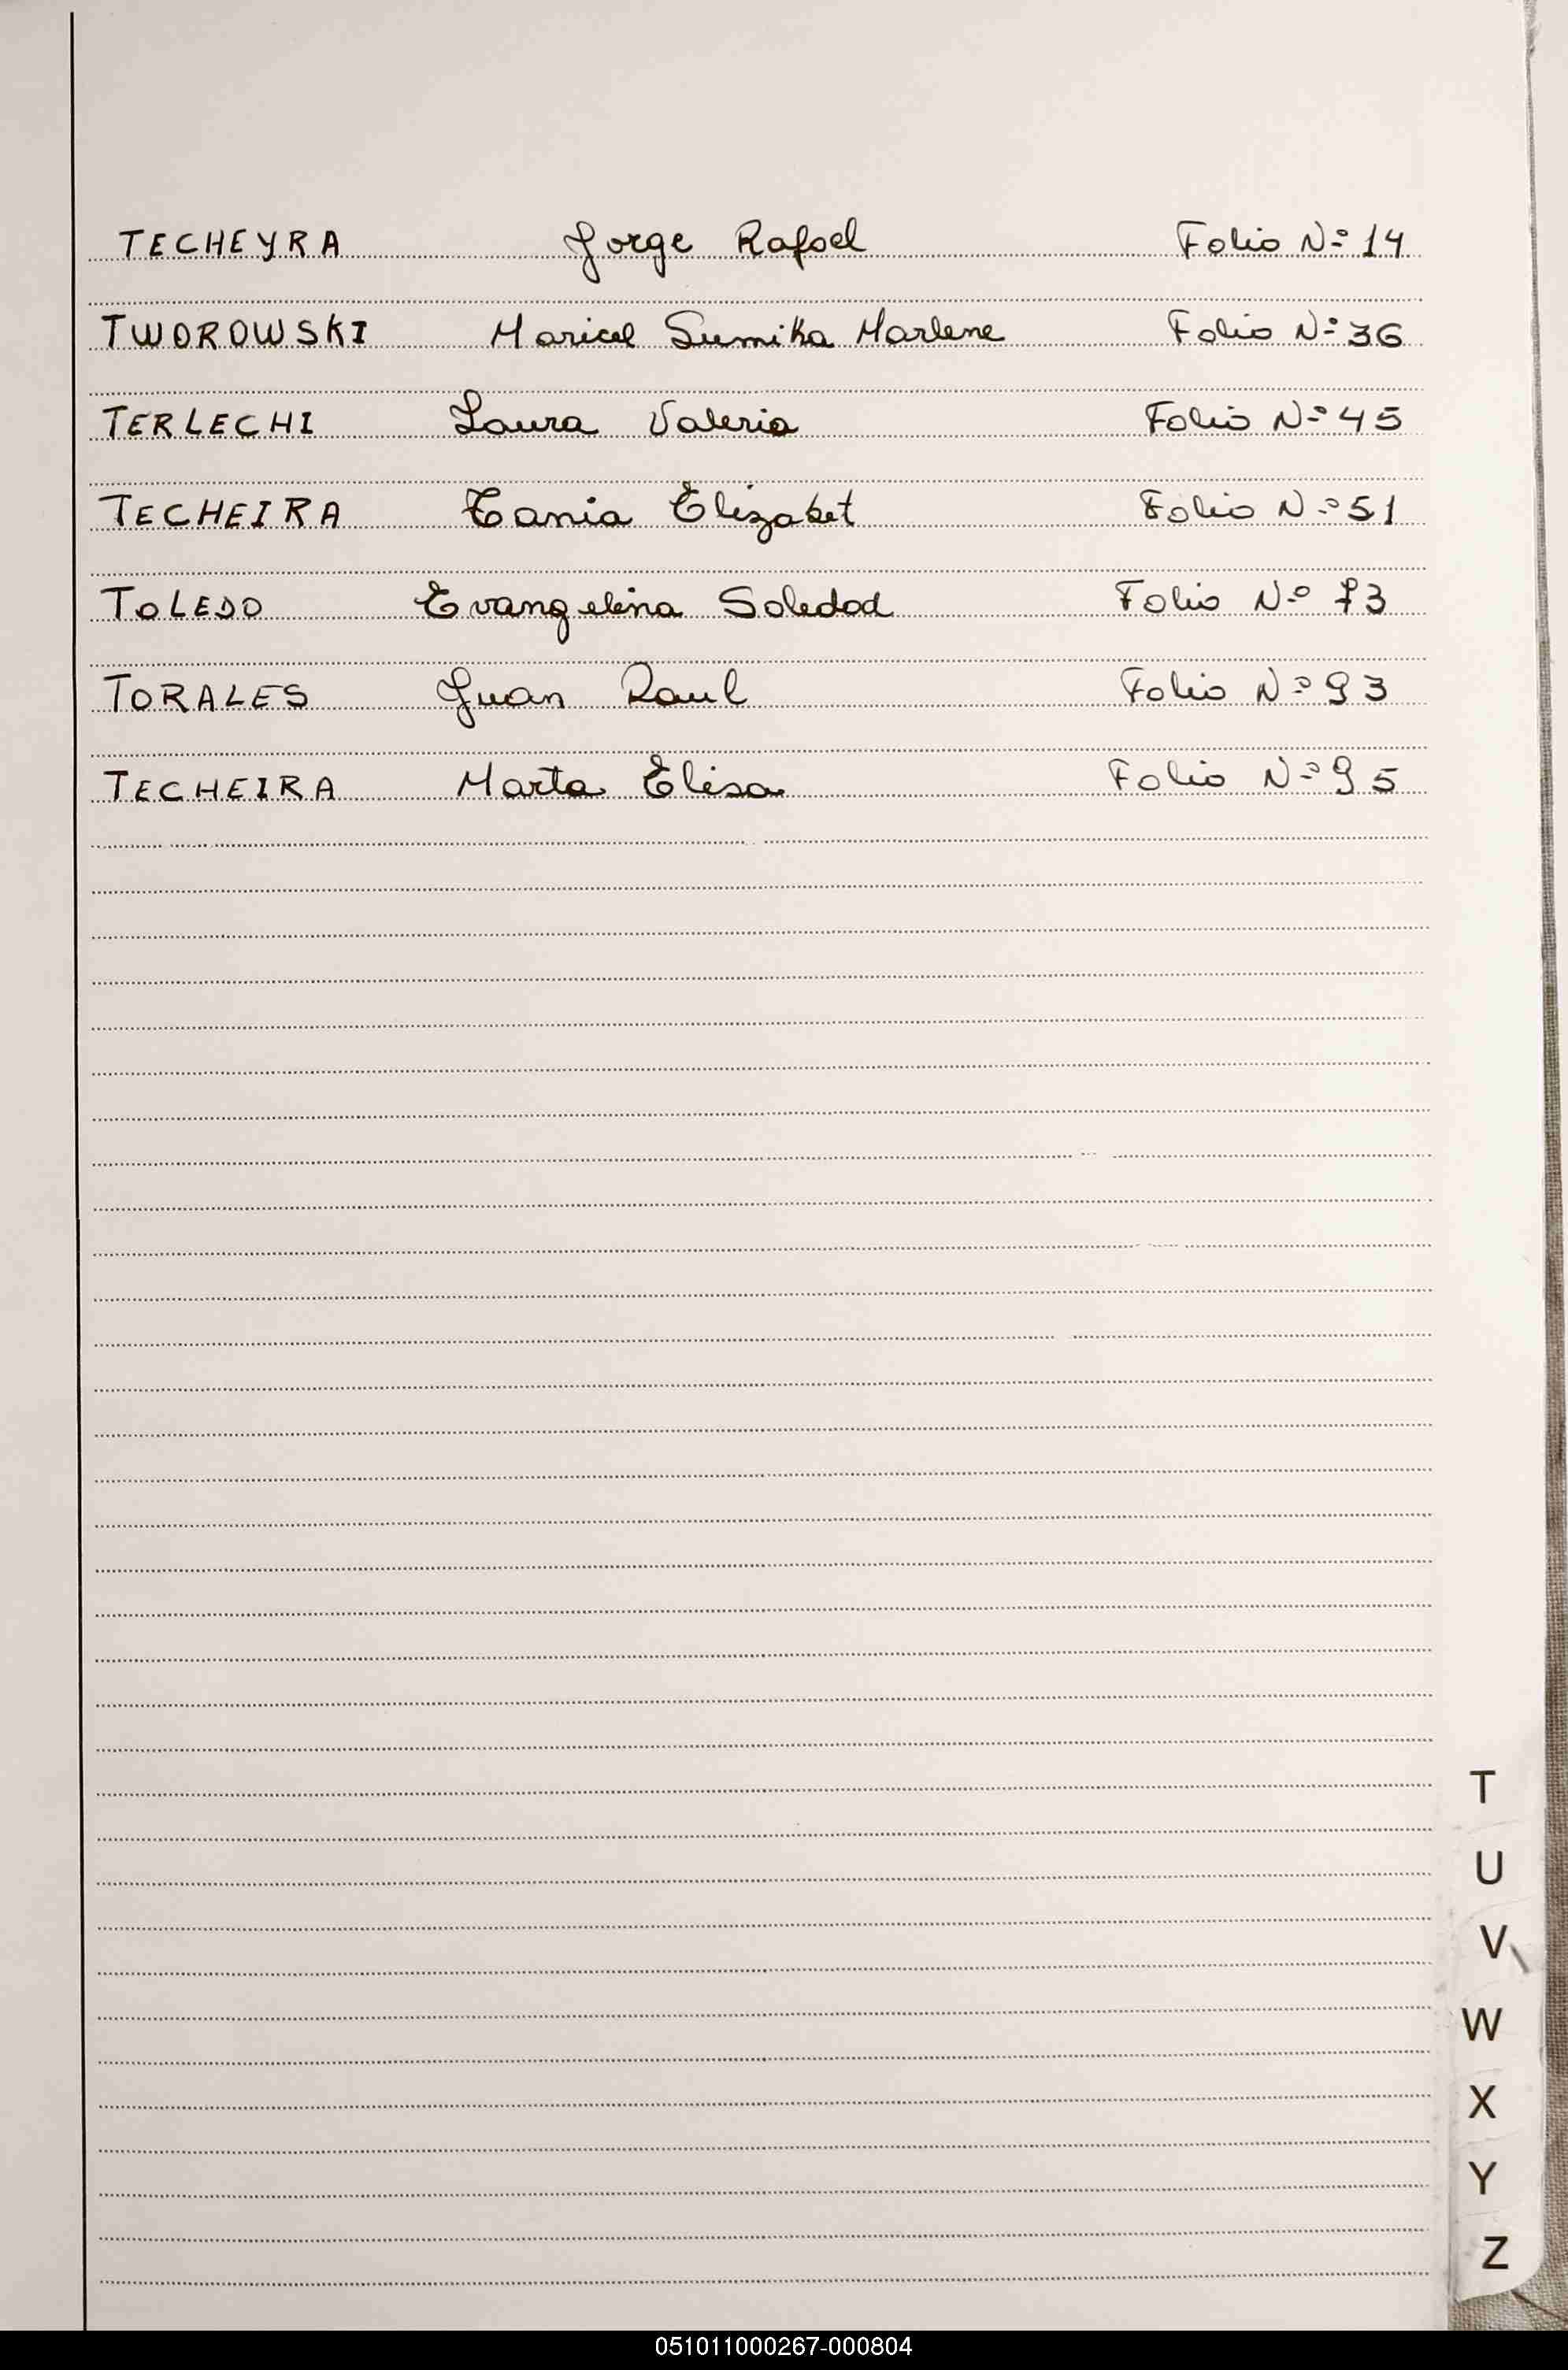 TECHEYRA Jorge Rafael Folio Nº 14
TWOROWSKI Maricel Sumika Marlene Folio Nº 36
TERLECHI Laura Valeria Folio Nº 45
TECHEIRA Tania Elizabet Folio Nº 51
TOLEDO Evangelina Soledad Folio Nº 73
TORALES Juan Raul Folio Nº 93
TECHEIRA Marta Elisa Folio Nº 95
T
U
V
W
X
Y
Z
051011000267-000804